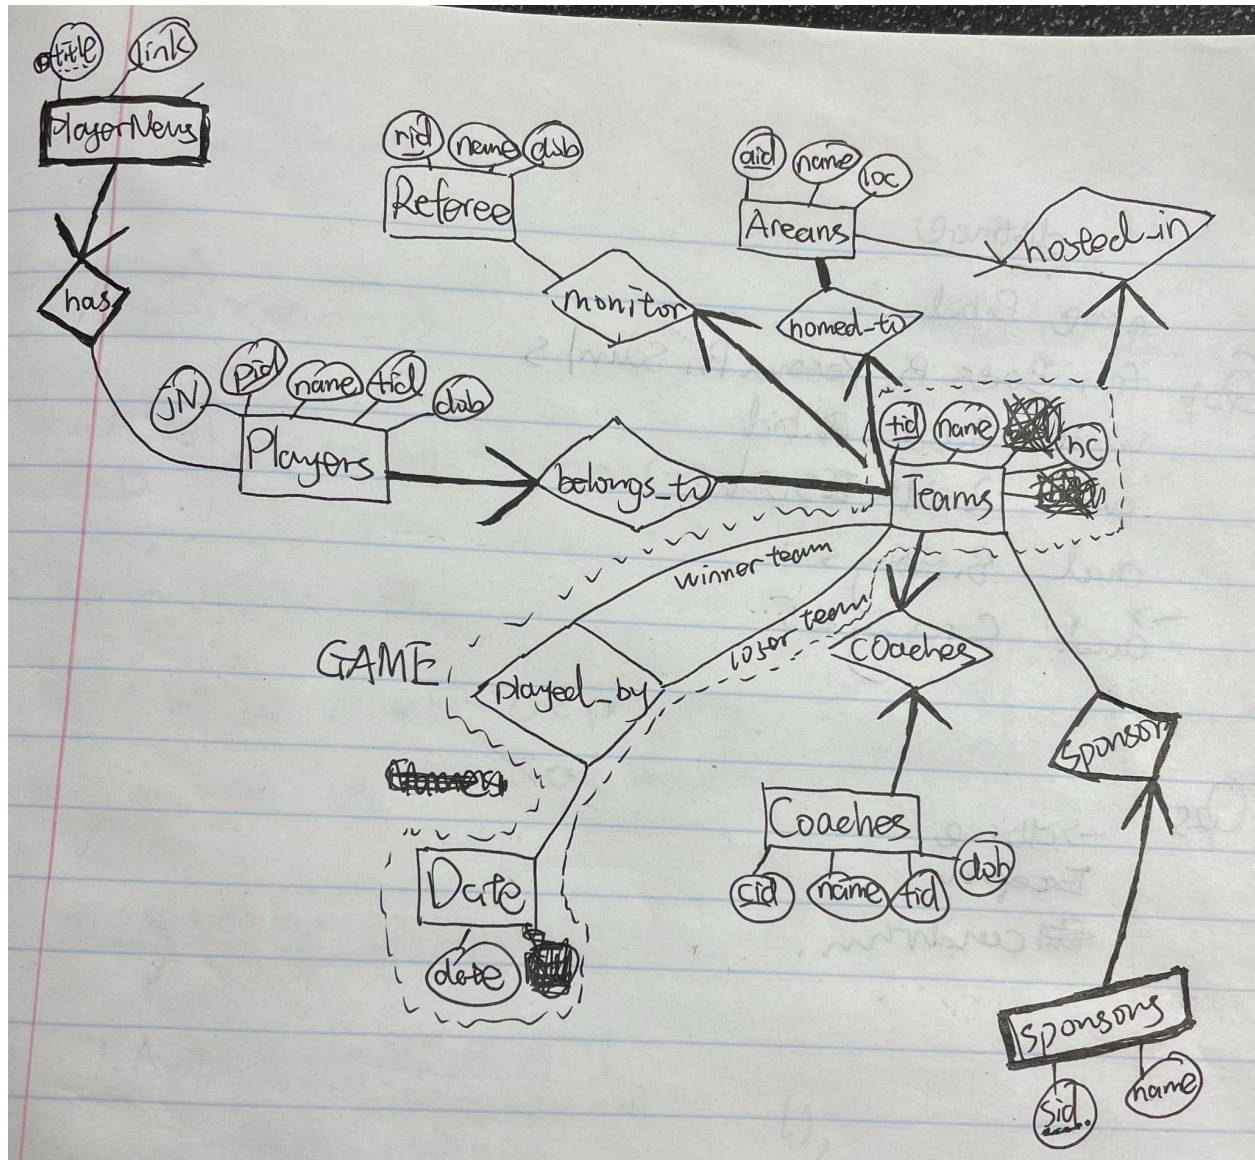 title link
PlayerNews
rid name dob
Referee
aid name loc
Areans
hosted_in
has
monitor
homed_to
jN pid name tid dob
Players
belongs_to
tid name hc
Teams
winner team
loser team
GAME
played_by
coaches
sponsor
Coaches
cid name tid dob
Date
date
sponsors
sid name